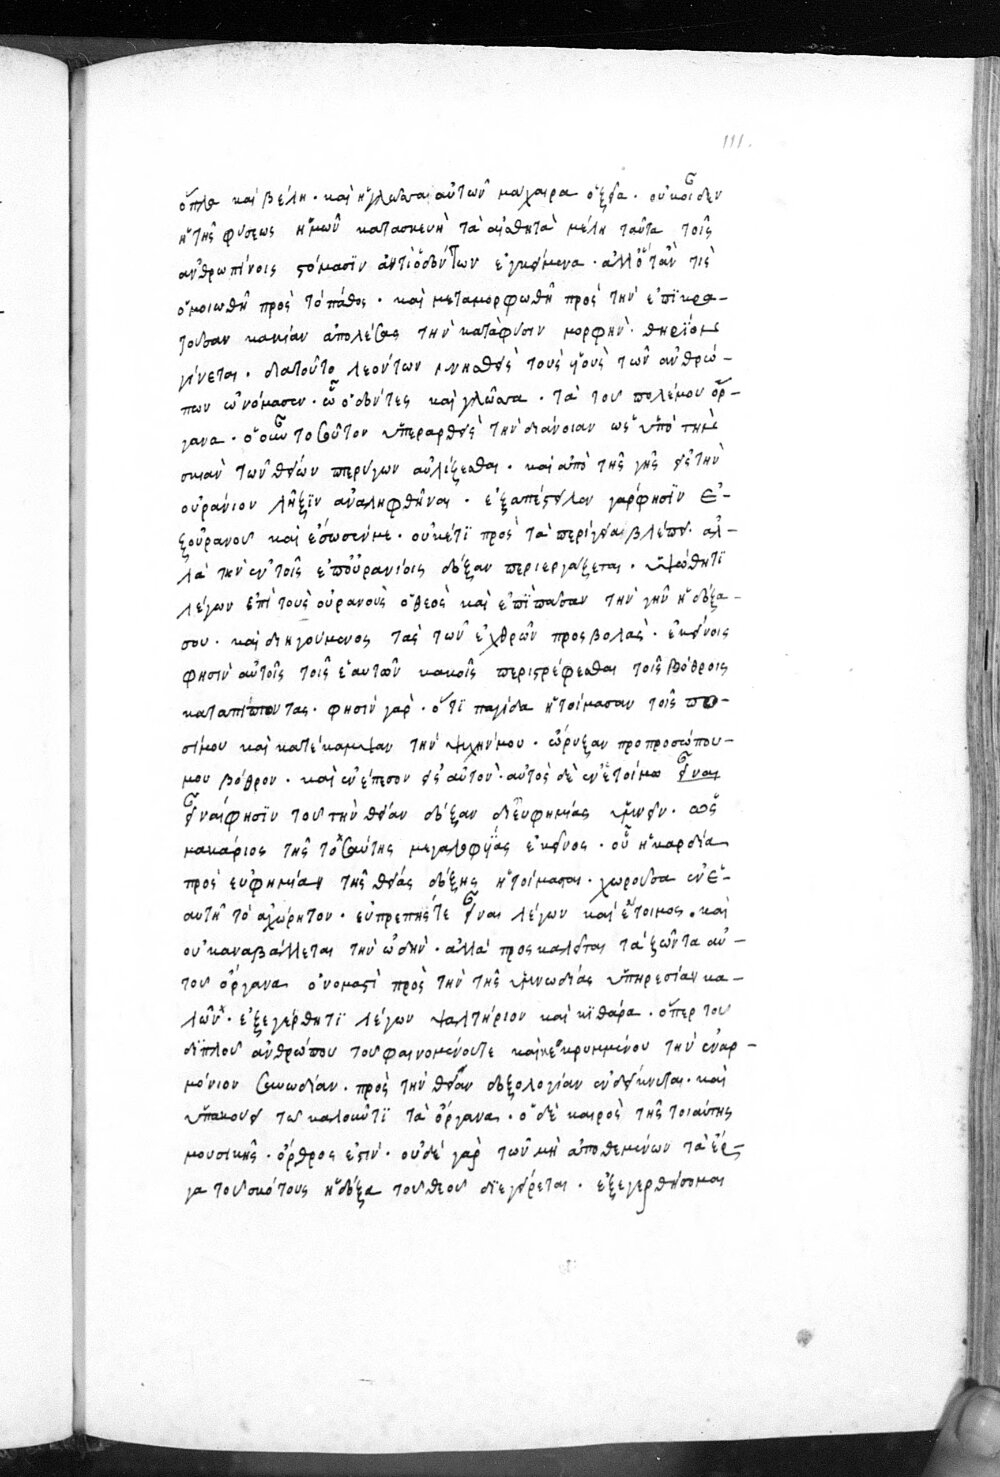 111.
ὅπλα καὶ βέλη · καὶ ἡ γλῶσσα αὐτῶν μάχαιρα ὀξεῖα · οὐκ οἶδεν
ἡ τῆς φύσεως ἡμῶν κατασκευὴ τὰ αἰσθητὰ μέλη ταῦτα τοῖς
ἀνθρωπίνοις στόμασϊν ἀντὶ ὀδόντων ἐγκείμενα · ἀλλ' ὅτἄν τὶς
ὁμοιωθῆ πρὸς τὸ πάθος · καὶ μεταμορφωθῆ πρὸς τὴν ἐπϊκρα-
τοῦσαν κακίαν ἀπολέσας τὴν κατὰ φύσιν μορφὴν · θηρίον
γίνεται · διατοῦτο λεόντων μνησθεὶς τοὺς υἱοὺς τῶν ἀνθρώ-
πων ὠνόμασεν · ὧ ὀδόντες καὶ γλῶσσα · τὰ τοῦ πολέμου ὄρ-
γανα · ὁ οὖν τοσοῦτον ὑπεραρθεὶς τὴν διάνοιαν ὡς ὑπὸ τὴν
σκιὰν τῶν θείων πτερύγων αὐλίζεσθαι · καὶ ἀπὸ τῆς γῆς εἰς τὴν
οὐράνιον λῆξϊν ἀναληφθῆναι · ἐξαπέστειλεν γάρ φησϊν ἐ-
ξουρανοῦ καὶ ἔσωσέν με · οὐκέτϊ πρὸς τὰ περίγεια βλέπει · ἀλ-
λὰ τὴν ἐν τοῖς ἐπουρανίοις δόξαν περιεργάζεται · ὑψώθητϊ
λέγων ἐπὶ τοὺς οὐρανοὺς ὁ θεὸς καὶ ἐπϊ πᾶσαν τὴν γῆν ἡ δόξα
σου · καὶ διηγούμενος τὰς τῶν ἐχθρῶν προσβολὰς · ἐκείνοις
φησὶν αὐτοῖς τοῖς ἑαυτῶν κακοῖς περιστρέφεσθαι τοῖς βόθροις
καταπίπτοντας · φησὶν γὰρ · ὅτϊ παγίδα ἡτοίμασαν τοῖς πο-
σί μου καὶ κατέκαμψαν τὴν ψυχήν μου · ὤρυξαν πρὸ προσώπου
μου βόθρον · καὶ ἐνέπεσον εἰς αὐτὸν · αὐτὸς δὲ ἐν ἑτοίμω εἶναι
εἶναί φησϊν τοῦ τὴν θείαν δόξαν δι εὐφημίας ὑμνεῖν · ὡς
μακάριος τῆς τοσαύτης μεγαλοφυΐας ἐκεῖνος · οὗ ἡ καρδία
πρὸς εὐφημίαν τῆς θείας δόξης ἡτοίμασται · χωροῦσα ἐν ἑ-
αυτῆ τὸ ἀχώρητον · εὐπρεπής τε εἶναι λέγων καὶ ἕτοιμος · καὶ
οὐκ ἀναβάλλεται τὴν ὠδὴν · ἀλλὰ προσκαλεῖται τὰ ζῶντα αὐ-
τοῦ ὄργανα ὀνομαστὶ πρὸς τὴν τῆς ὑμνωδίας ὑπηρεσίαν κα-
λῶν · ἐξεγέρθητϊ λέγων ψαλτήριον καὶ κϊθάρα · ὅπερ τοῦ
διπλοῦ ἀνθρώπου τοῦ φαινομένου τε καὶ κεκρυμμένου τὴν ἐναρ-
μόνιον συνωδίαν · πρὸς τὴν θείαν δοξολογίαν ἐνδείκνυται · καὶ
ὑπακούει τῶ καλοῦντϊ τὰ ὄργανα · ὁ δὲ καιρὸς τῆς τοιαύτης
μουσικῆς · ὄρθρος ἐστὶν · οὐδὲ γὰρ τῶν μὴ ἀποθεμένων τὰ ἔρ-
γα τοῦ σκότους ἡ δόξα τοῦ θεοῦ διεγείρεται · ἐξεγερθήσομαι